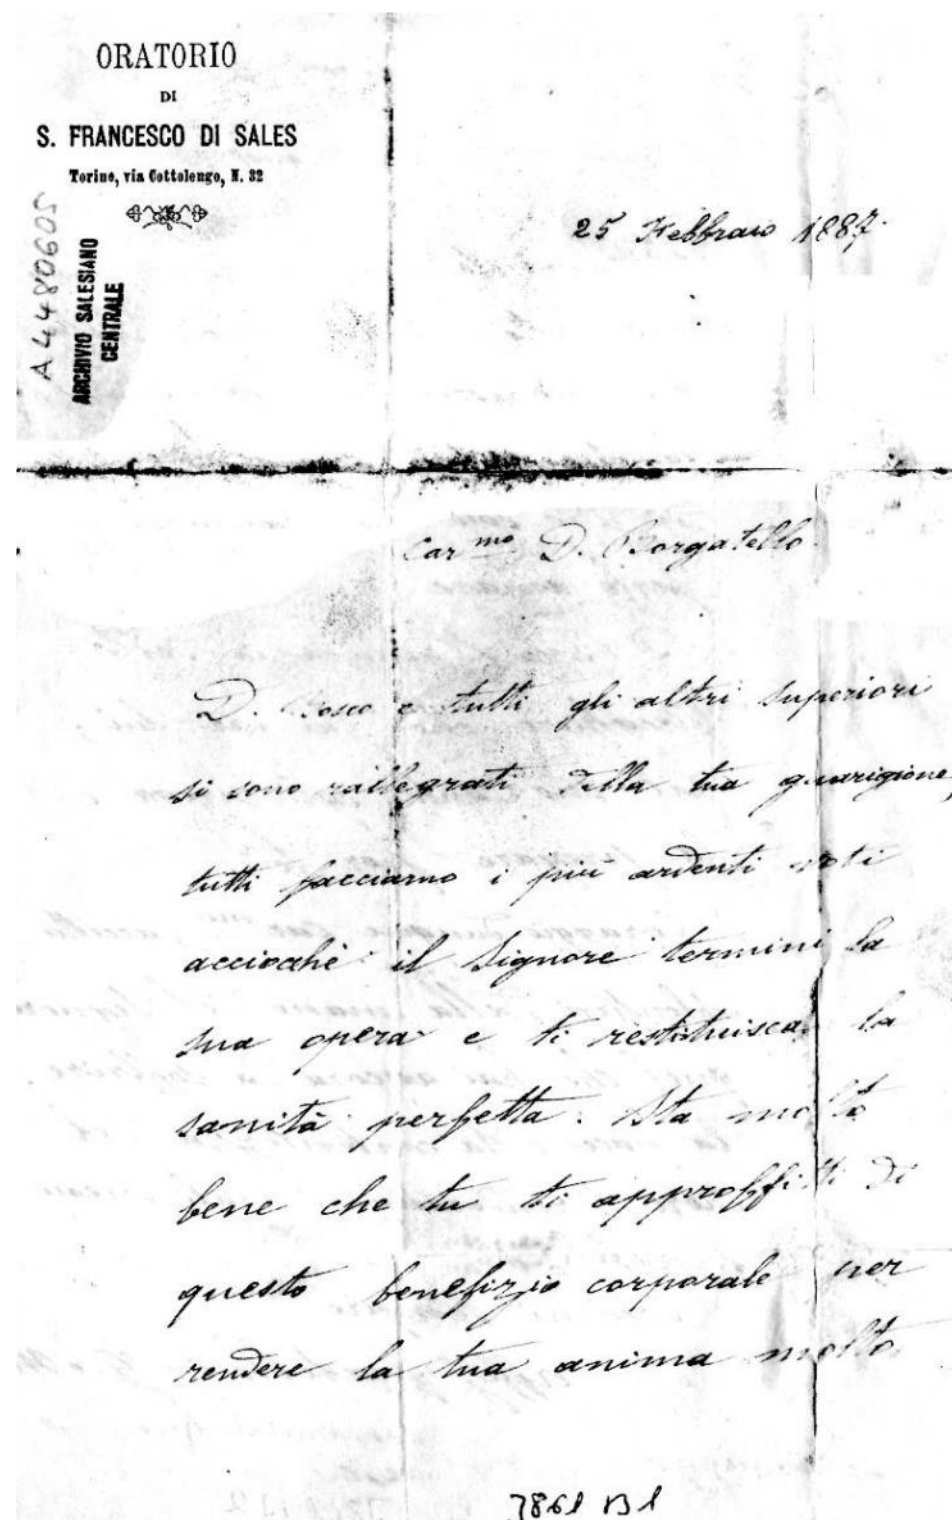 ORATORIO
DI
S. FRANCESCO DI SALES
Torino, via Cottolengo, N. 32
A4480605
ARCHIVIO SALESIANO
CENTRALE
25 Febbraio 1887.
Car.mo D. Borgatello
D. Bosco e tutti gli altri superiori
si sono rallegrati della tua guarigione,
tutti facciamo i più ardenti voti
acciocchè il Signore termini la
sua opera e ti restituisca la
sanità perfetta. Sta molto
bene che tu ti approffitti di
questo benefizio corporale per
rendere la tua anima molto